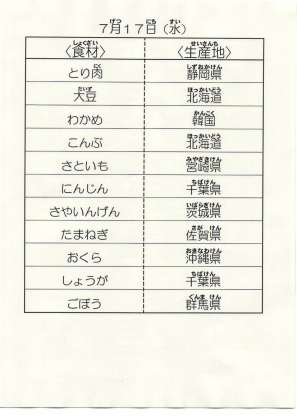 7月17日（水）
〈食材〉 〈生産地〉
とり肉 静岡県
大豆 北海道
わかめ 韓国
こんぶ 北海道
さといも 宮崎県
にんじん 千葉県
さやいんげん 茨城県
たまねぎ 佐賀県
おくら 沖縄県
しょうが 千葉県
ごぼう 群馬県